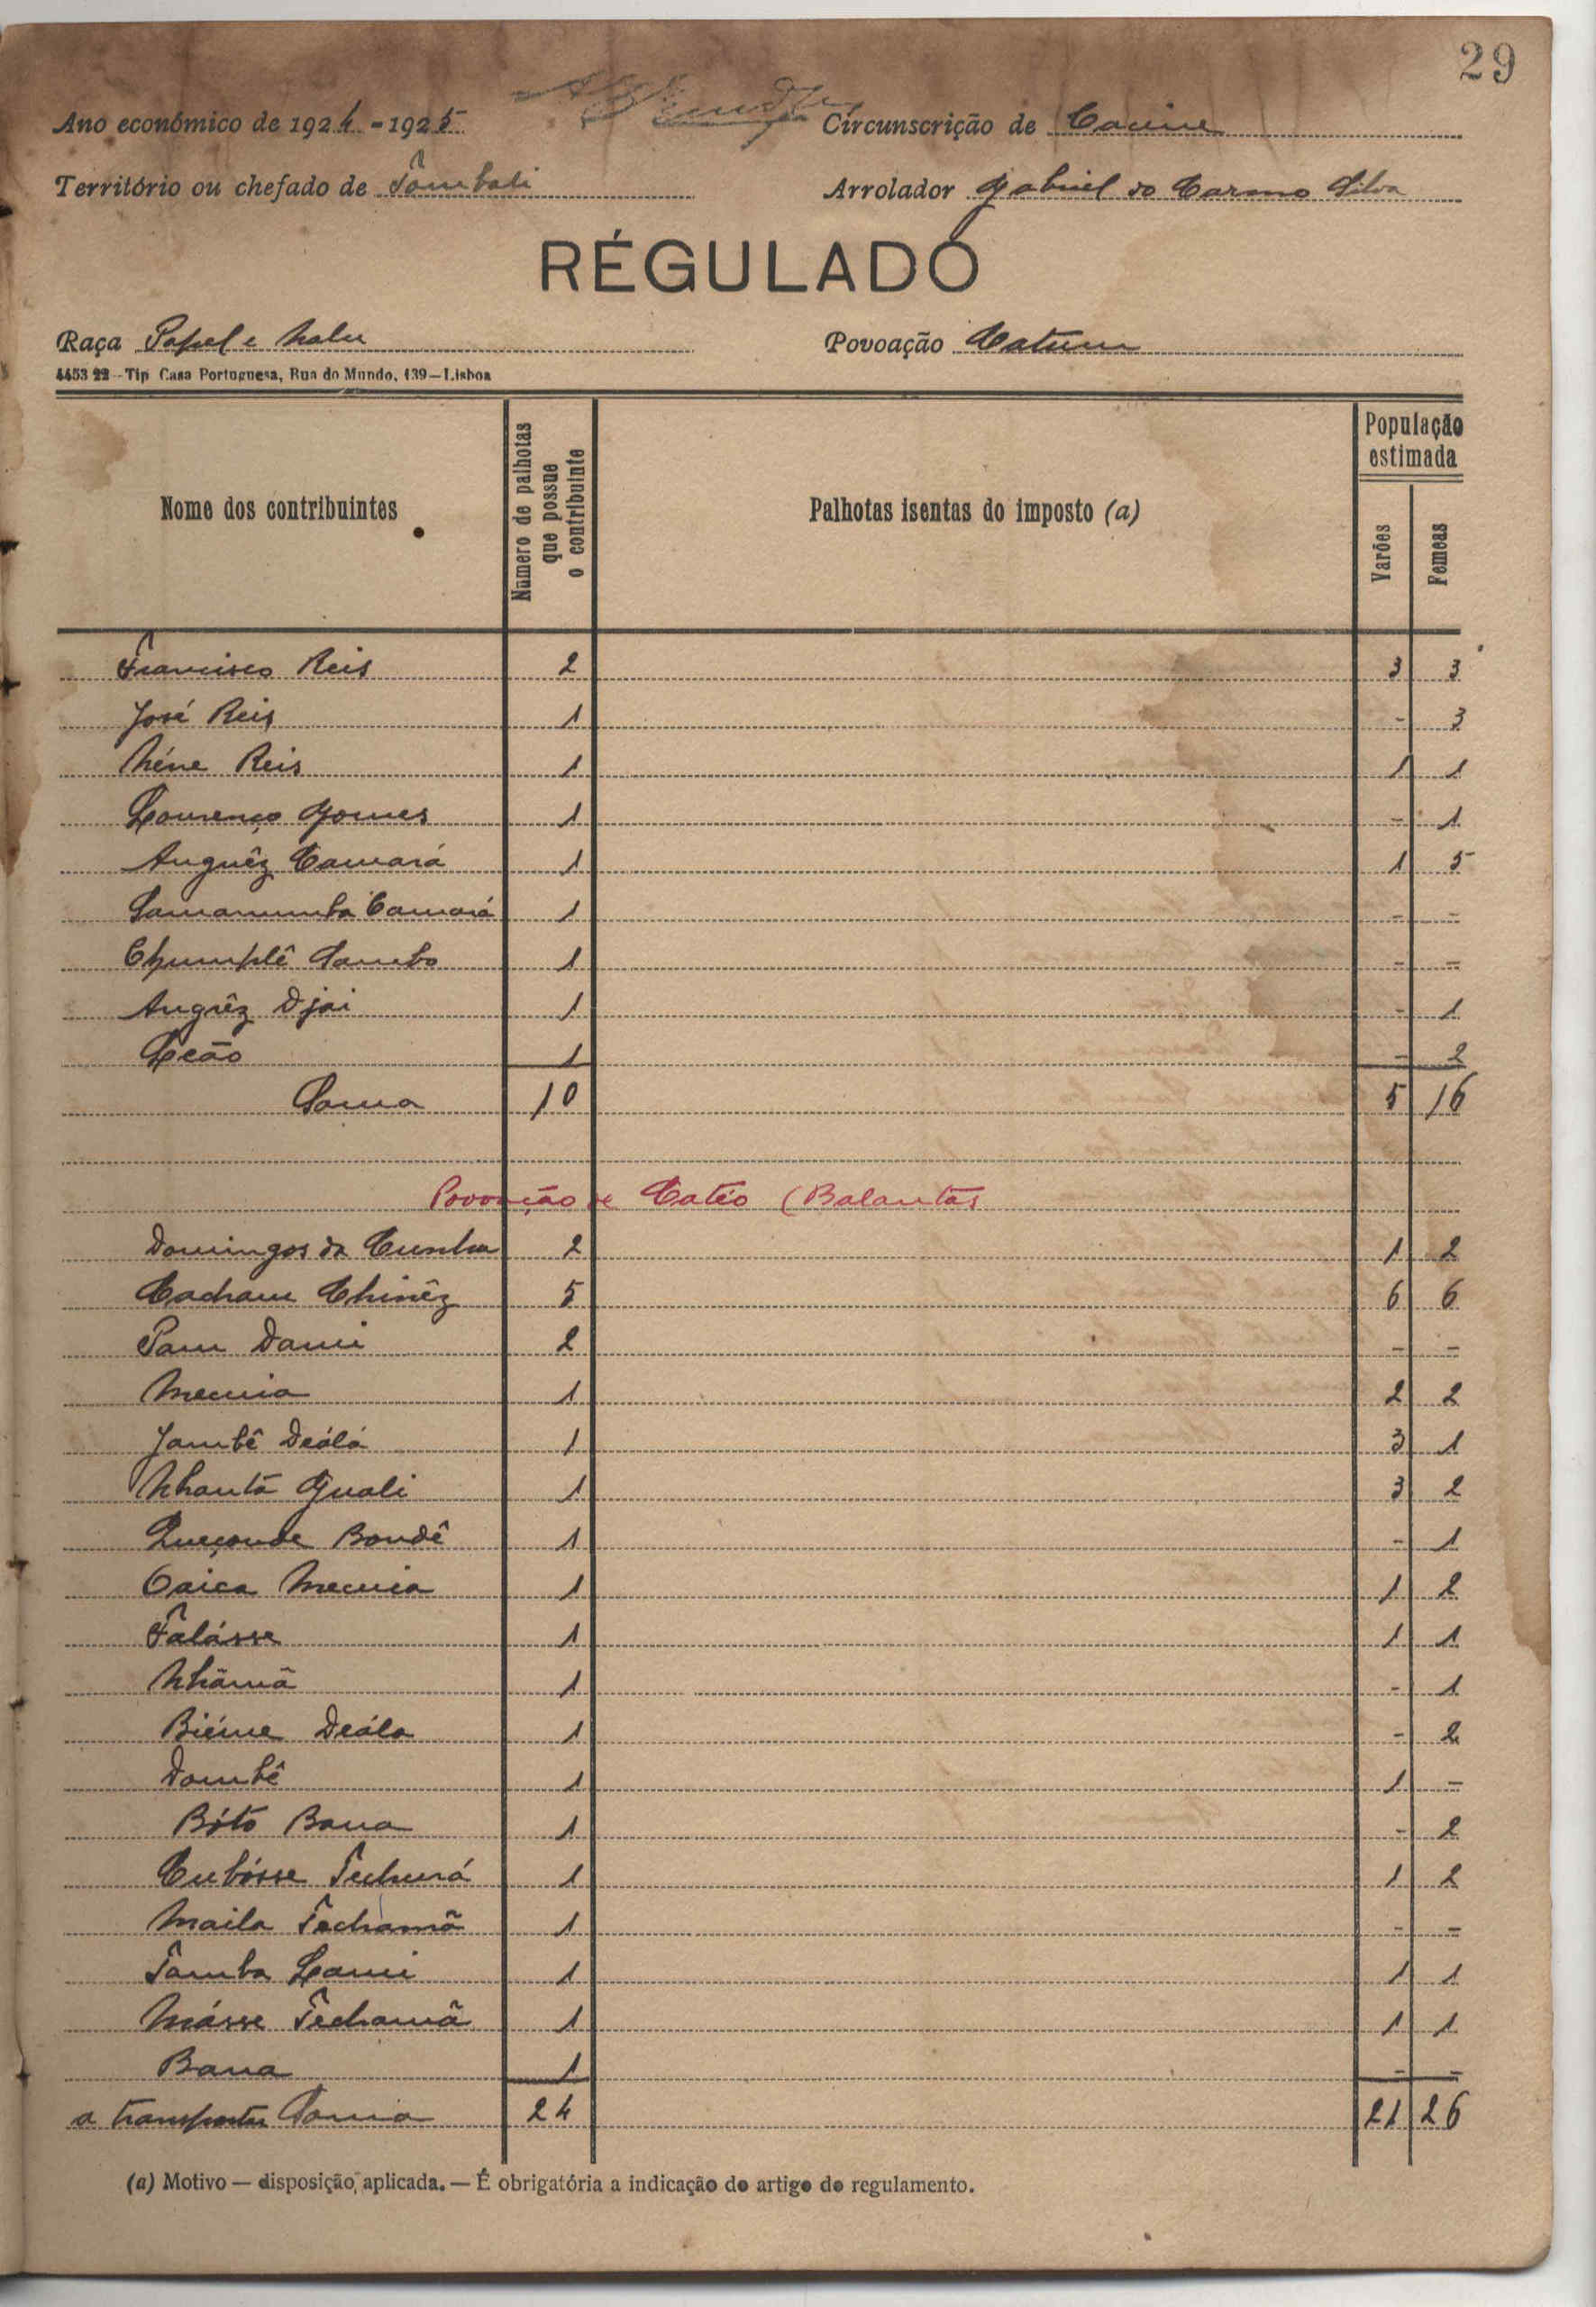 29
Ano económico de 1924-1925 Circunscrição de Cacine
Território ou chefado de Tombali Arrolador Gabriel do Carmo Silva
RÉGULADO
Raça Papel e Nalu Povoação Catum
4453 22--Tip Casa Portuguesa, Rua do Mundo, 139—Lisboa
Nome dos contribuintes Número de palhotas que possue o contribuinte Palhotas isentas do imposto (a) População estimada Varões Femeas
Francisco Reis 2 3 3
José Reis 1 - 3
Néne Reis 1 1 1
Lourenço Gomes 1 - 1
Anguêz Camará 1 1 5
Samanumba Camará 1 - -
Chumplê Sambo 1 - -
Augrêz Djai 1 - 1
Leão 1 - 2
Soma 10 5 16
Povoação de Catéo (Balantas
Domingos da Cunha 2 1 2
Cacham Chinêz 5 6 6
Pam Dami 2 - -
Mecuia 1 2 2
Jambê Deálá 1 3 1
Nhantã Guali 1 3 2
Queçonde Bondê 1 - 1
Caica Mecuia 1 1 2
Falásse 1 1 1
Nhãmã 1 - 1
Biéme Deála 1 - 2
Dombê 1 1 -
Bótó Bana 1 - 2
Cubósse Tuhurá 1 1 2
Maila Techamã 1 - -
Tamba Lami 1 1 1
Másse Techamã 1 1 1
Bana 1 - -
a transportar Soma 24 21 26
(a) Motivo — disposição, aplicada. — É obrigatória a indicação do artigo do regulamento.